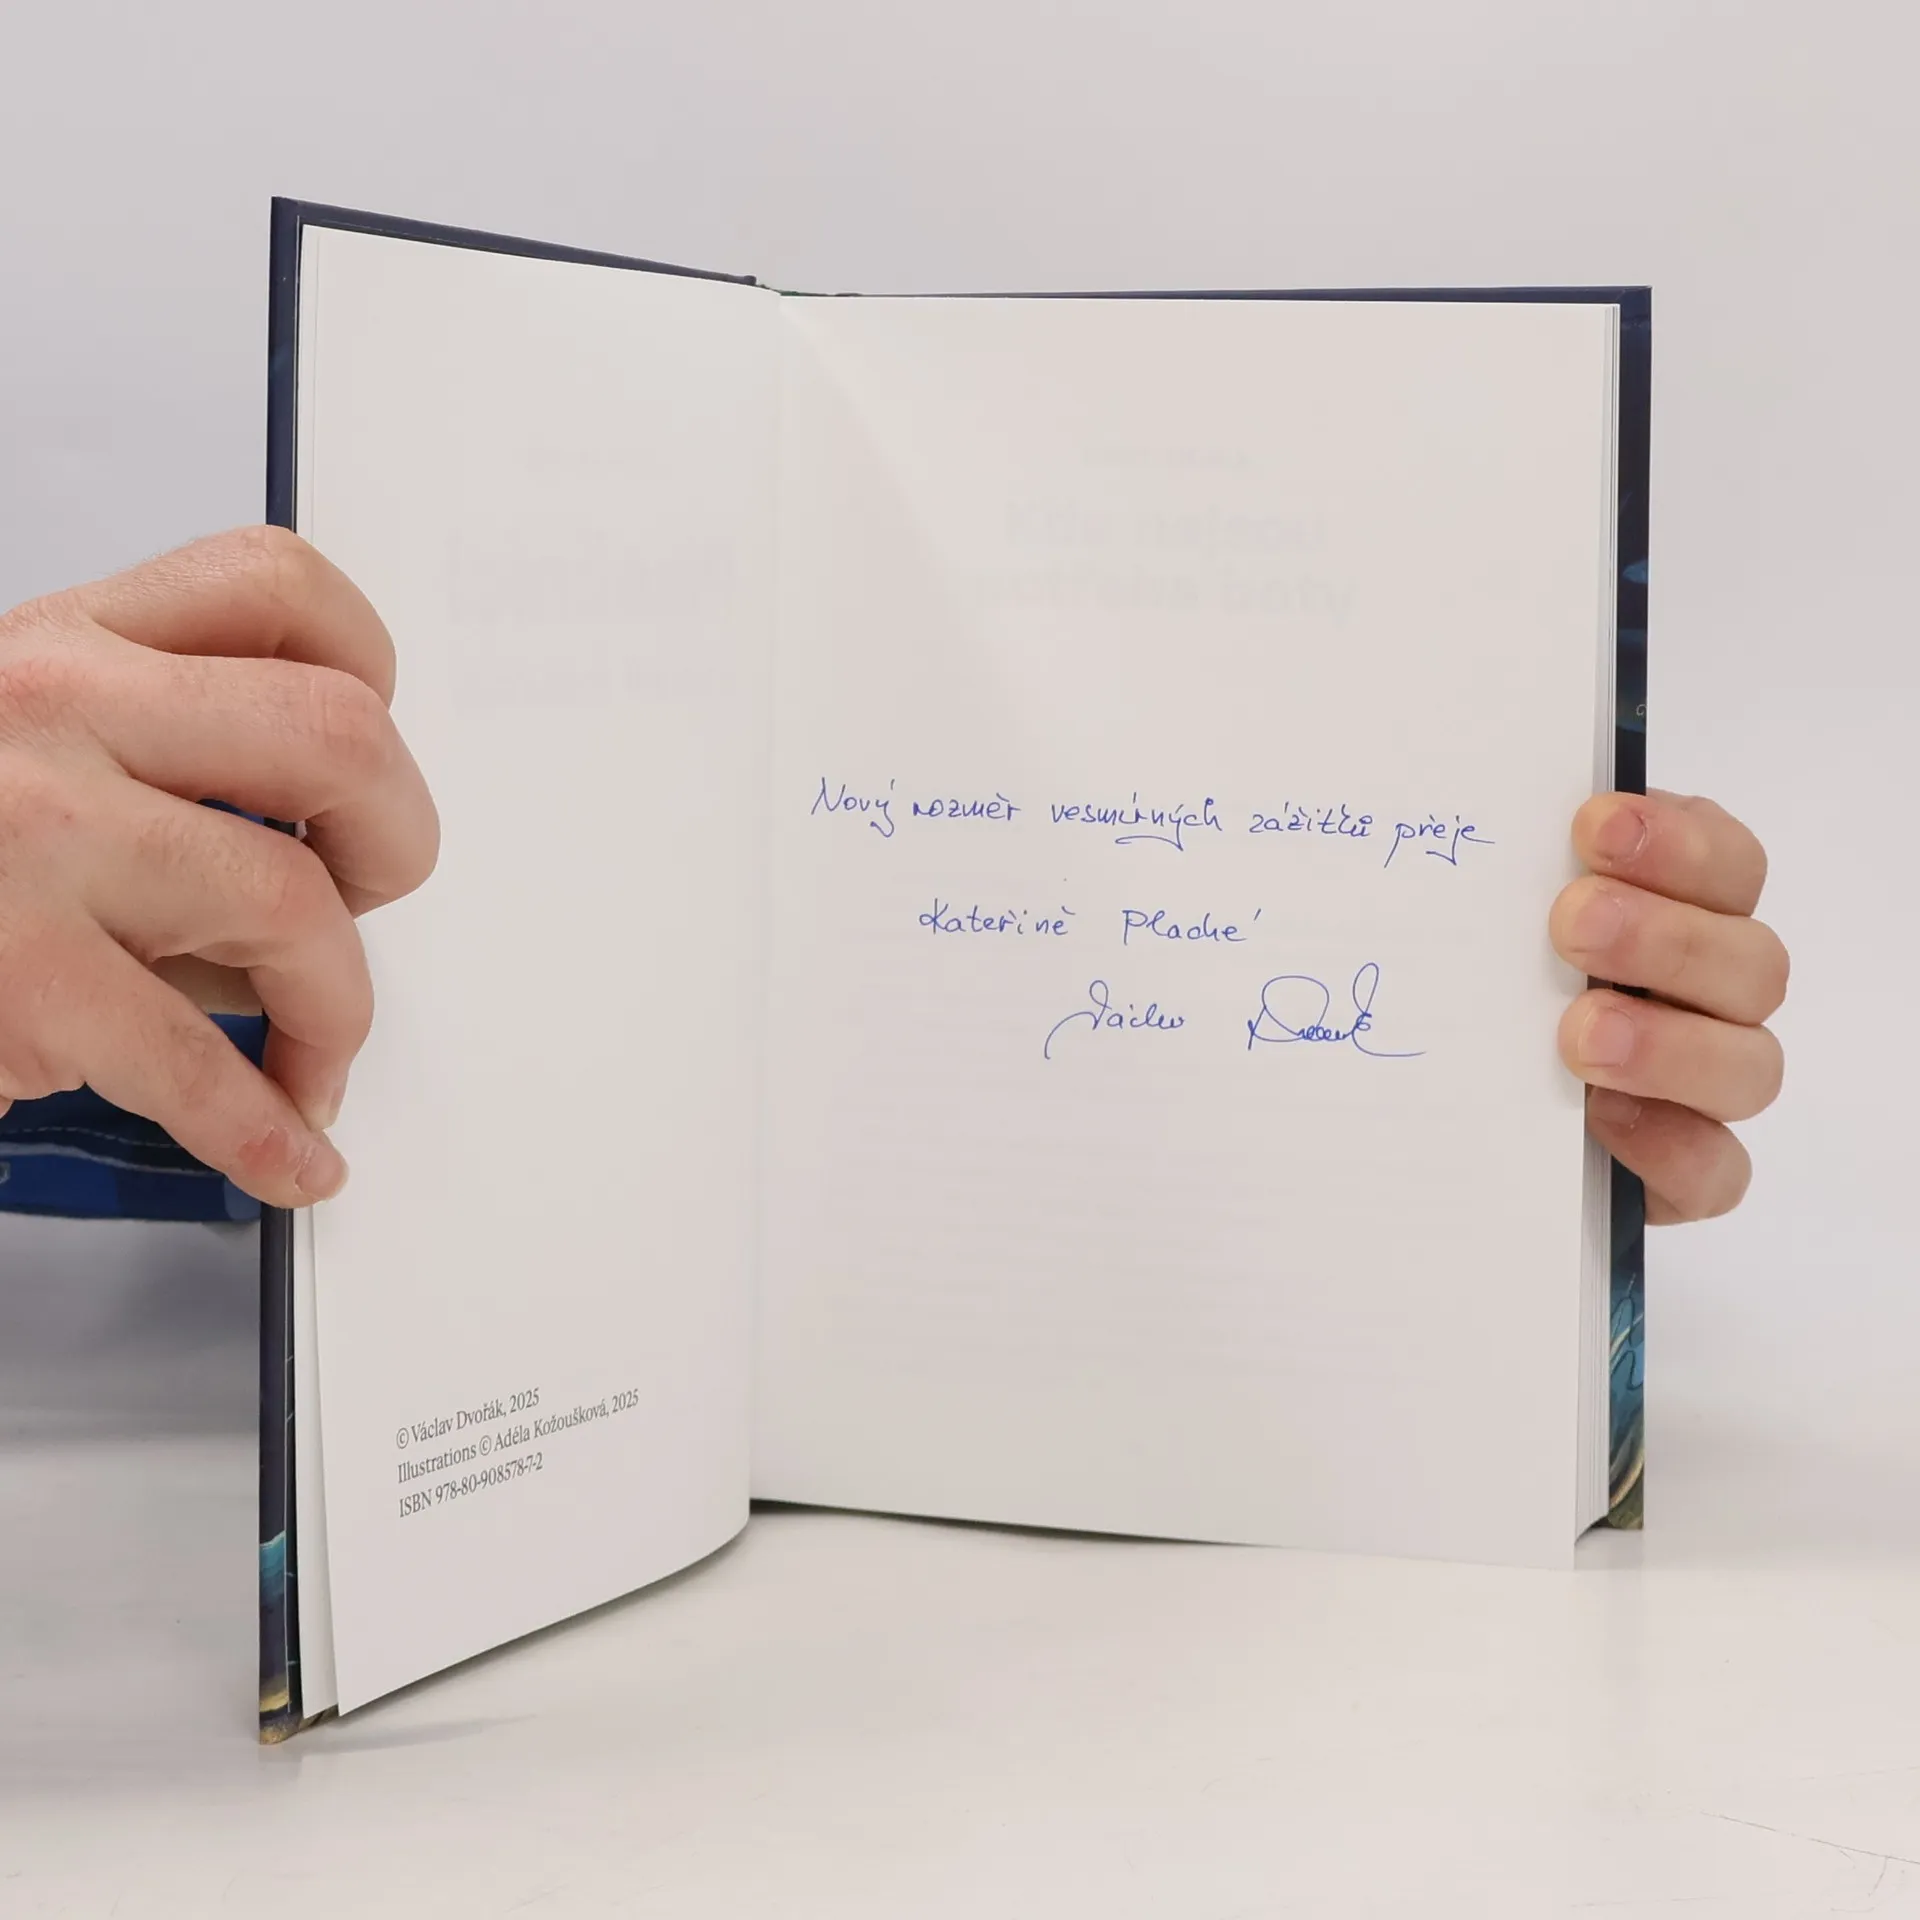 © Václav Dvořák, 2025
Illustrations © Adéla Kožoušková, 2025
ISBN 978-80-908578-7-2
Kde nejsou
potřeba boty
Nový rozměr vesmírných zážitků přeje
Kateřině Plaché
Václav Dvořák